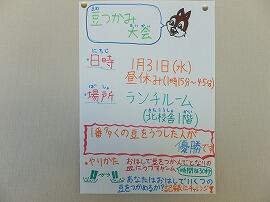 豆つかみ
大会
・日時 1月31日(水)
昼休み(1時15分～45分)
・場所 ランチルーム
(北校舎1階)
1番多くの豆をうつした人が
優勝です
・やりかた おはしで豆をつかんでとなりの
皿にうつすゲーム 時間は30秒
あなたはおはしでいくつの
豆をつかめるか? 記録にチャレンジ!